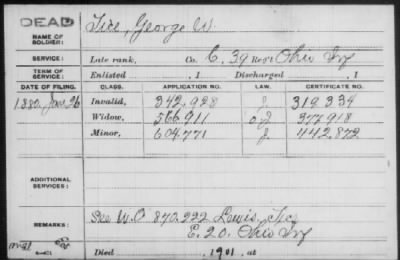 DEAD
NAME OF SOLDIER: Tice, George W.
SERVICE: Late rank, Co. C, 39 Reg't Ohio Inf
TERM OF SERVICE: Enlisted , 1 Discharged , 1
DATE OF FILING. CLASS. APPLICATION NO. LAW. CERTIFICATE NO.
1880, Jan, 26 Invalid, 342.928 J. 319334
Widow, 566,911 377918
Minor, 604.771 J. 442.872
ADDITIONAL SERVICES:
REMARKS: See W.O 870222 Lewis, Tice
E. 20. Ohio Inf
Died 1901, at